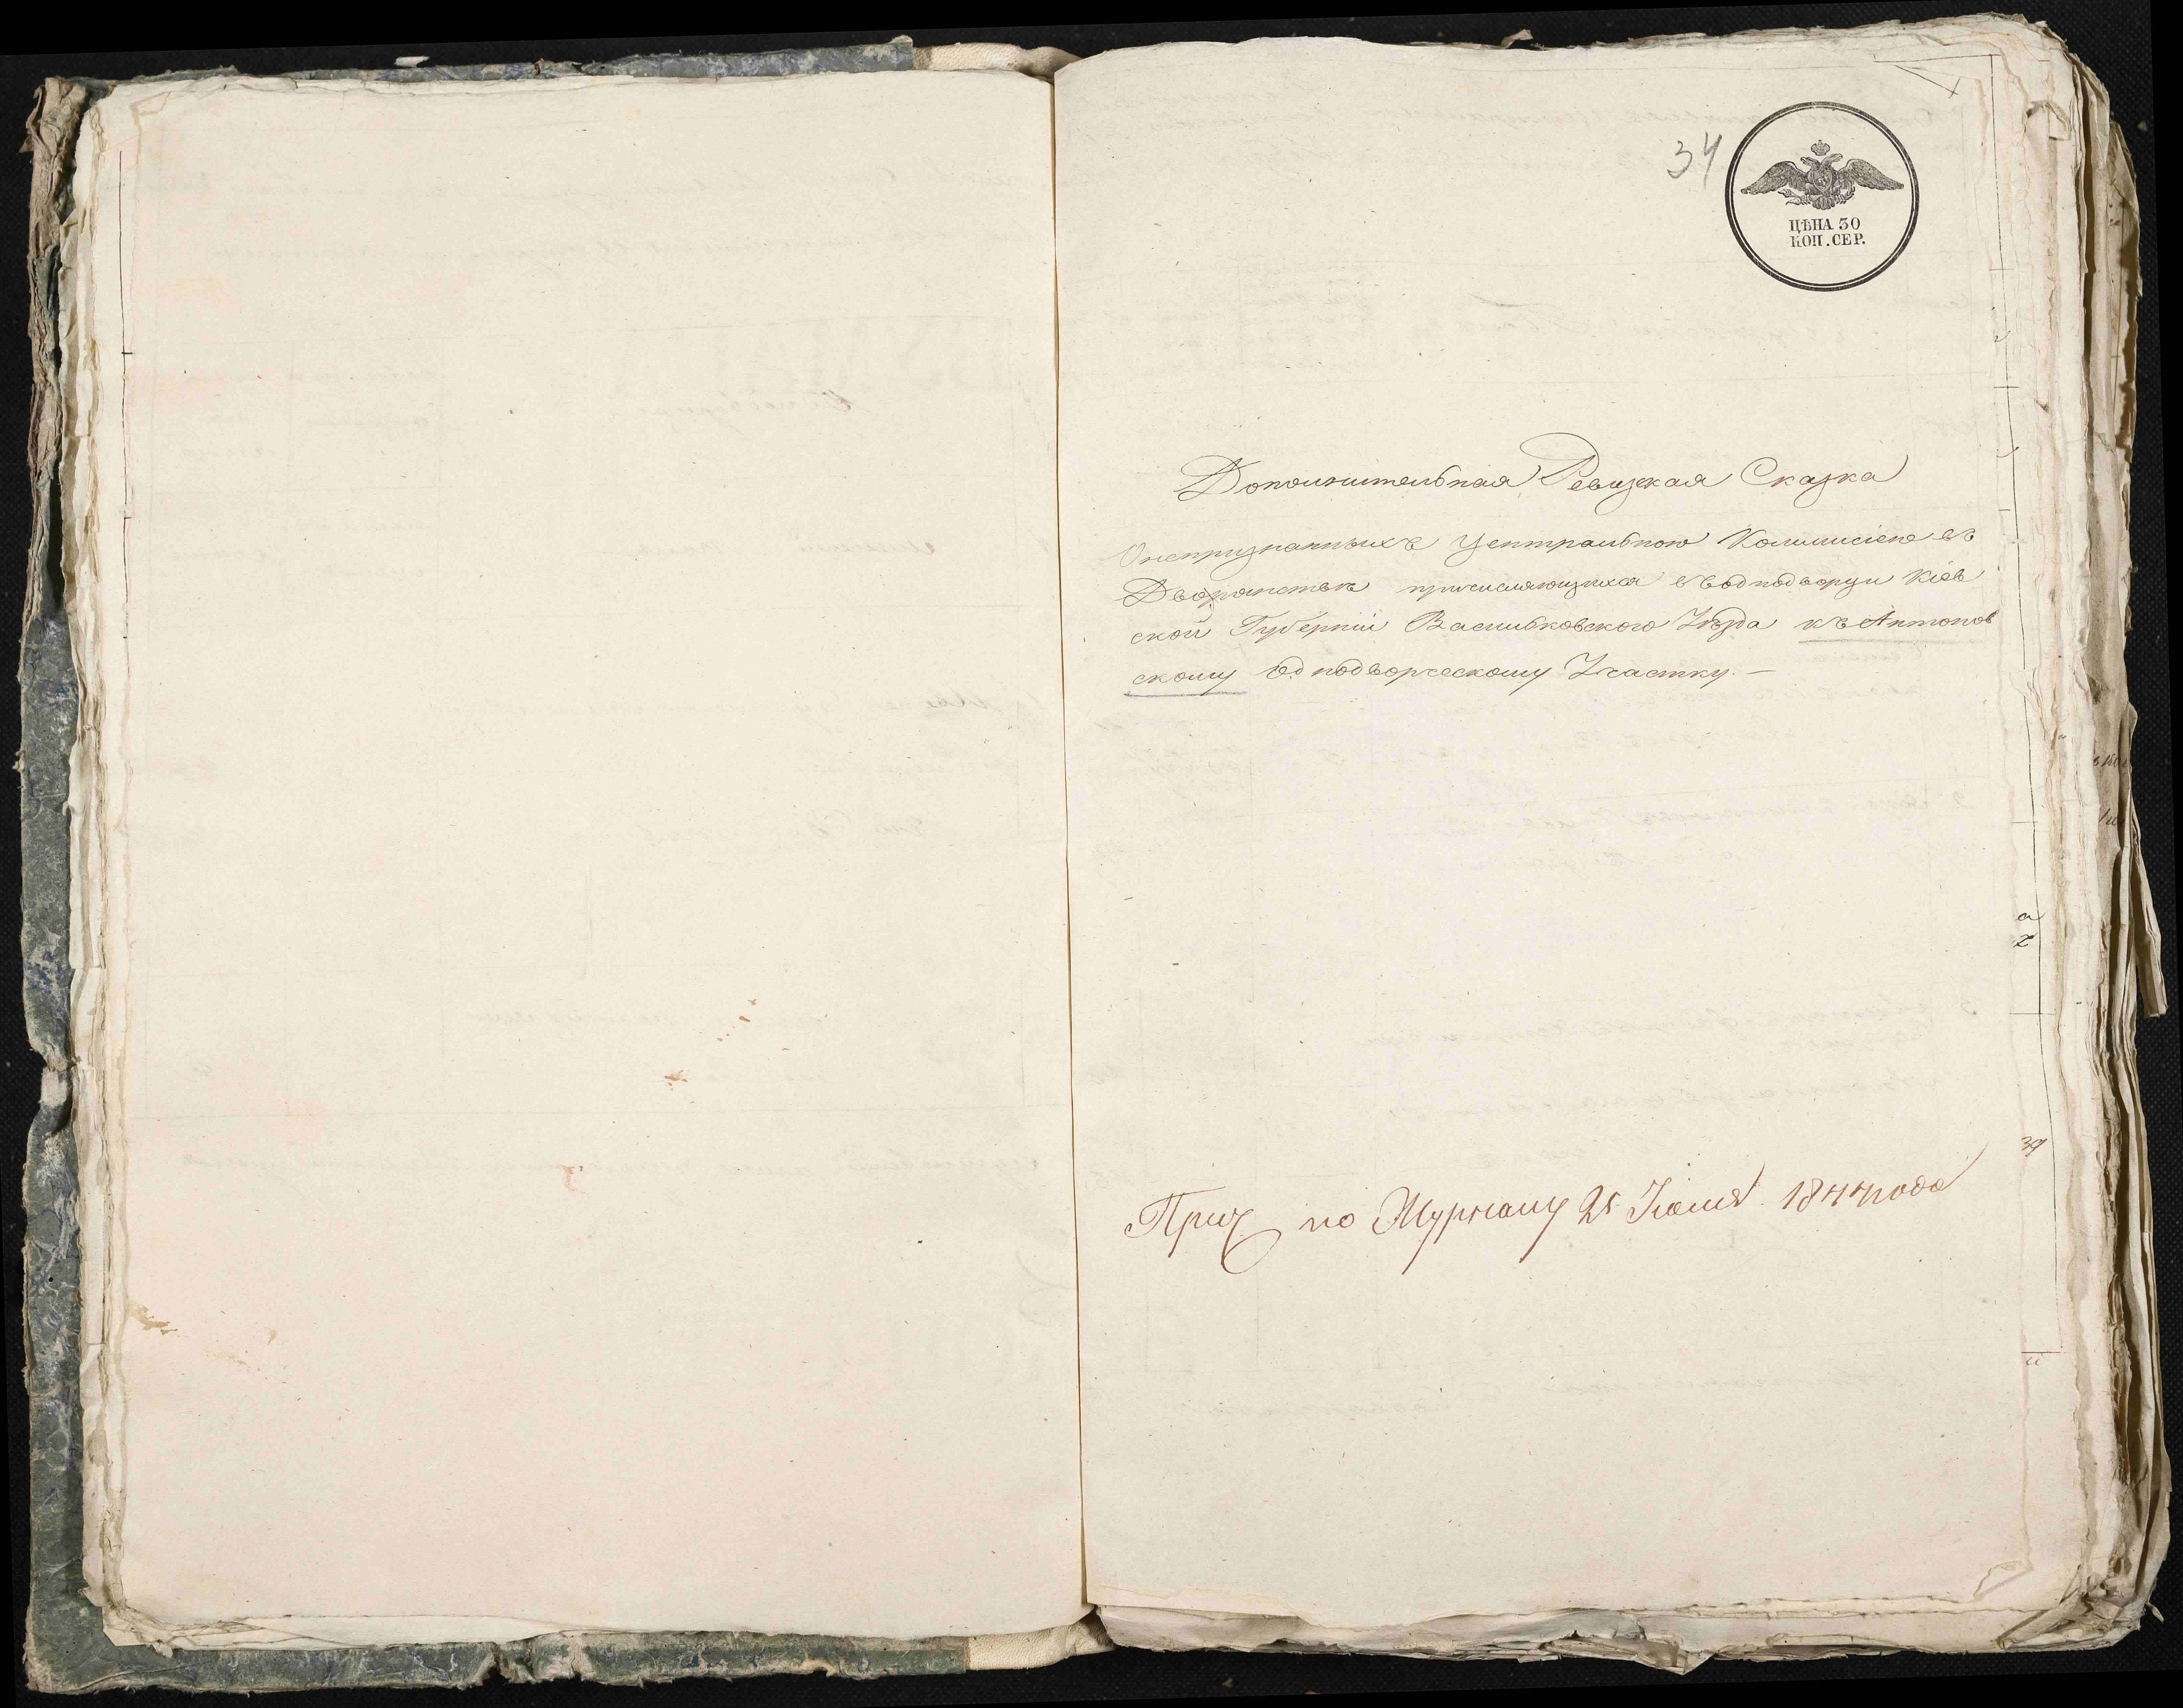 34
ЦѢНА 30
КОП. СЕР.
Дополнительная Ревизкая Сказка
О непризнанныхъ Центральною Коммисіею въ
Дворянствѣ причисляющихся въ однодворци Кіев
ской Губерніи Васильковского Уѣзда къ Антонов
скому Однодворческому Участку. —
Прич по Журналу 21 Іюля 1844 года